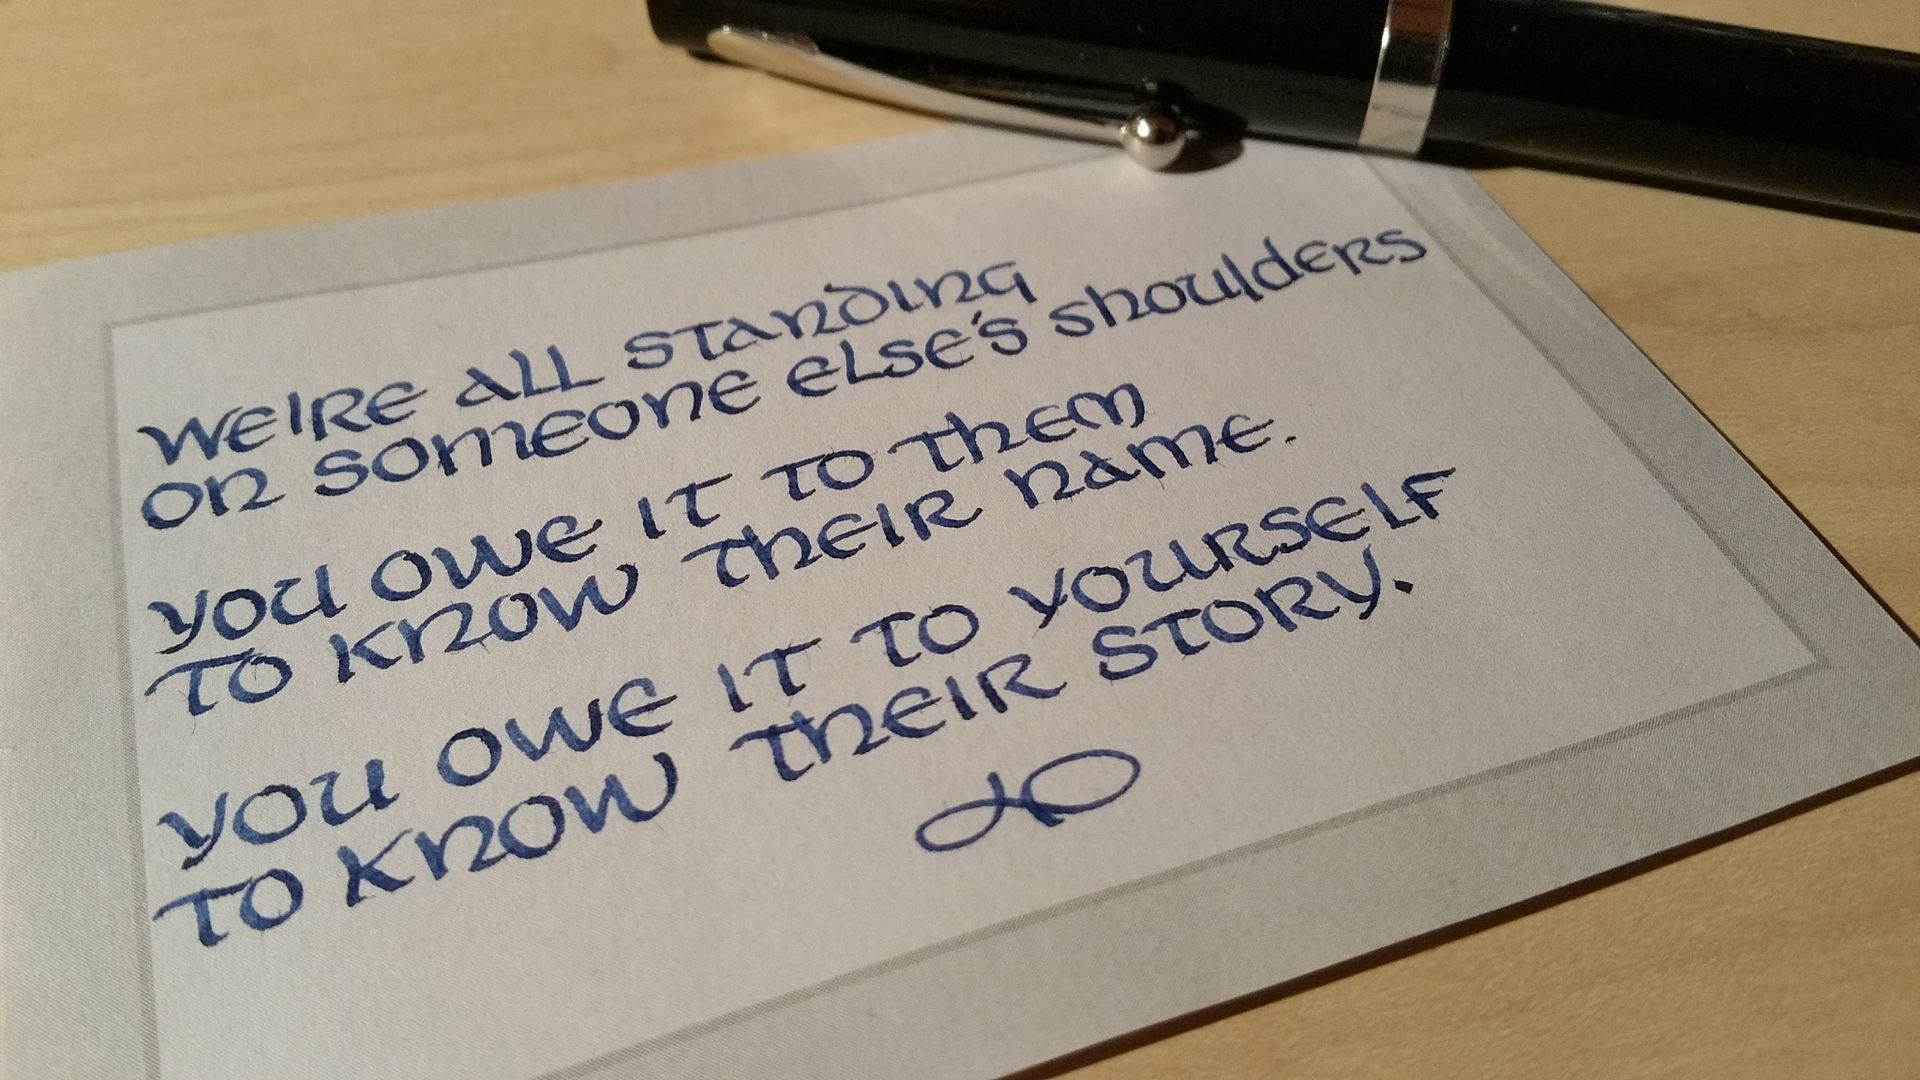 WE'RE ALL STANDING
ON SOMEONE ELSE'S SHOULDERS
YOU OWE IT TO THEM
TO KNOW THEIR NAME.
YOU OWE IT TO YOURSELF
TO KNOW THEIR STORY.